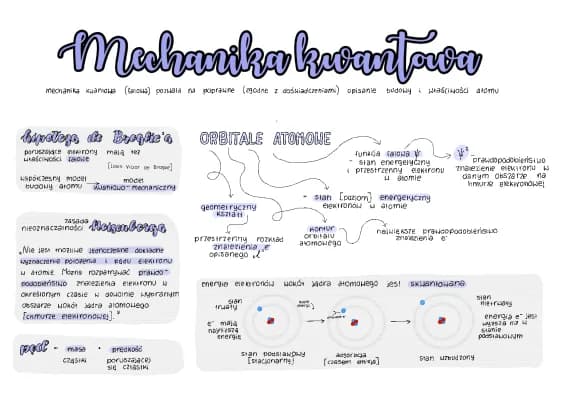 Mechanika kwantowa
mechanika kwantowa (falowa) pozwala na poprawne (zgodne z doświadczeniami) opisanie budowy i właściwości atomu
hipoteza de Broglie'a
poruszające elektrony mają też
właściwości falowe
[Louis Victor de Broglie]
współczesny model budowy atomu
model kwantowo-mechaniczny
zasada nieoznaczoności Heisenberga
"Nie jest możliwe jednoczesne dokładne
wyznaczenie położenia i pędu elektronu
w atomie. Można rozpatrywać prawdo-
podobieństwo znalezienia elektronu w
określonym czasie w dowolnie wybranym
obszarze wokół jądra atomowego
[chmurze elektronowej]."
pęd - masa · prędkość
cząstki poruszającej
się cząstki
ORBITALE ATOMOWE
funkcja falowa ψ
- stan energetyczny
i przestrzenny elektronu
w atomie
ψ² - prawdopodobieństwo
znalezienie elektronu w
danym obszarze na
chmurze elektronowej
stan [poziom] energetyczny
elektronów w atomie
geometryczny
kształt
przestrzenny rozkład
znalezienia e⁻
opisanego
kontur
orbitalu
atomowego
największe prawdopodobieństwo
znalezienia e⁻
energie elektronów wokół jądra atomowego jest skwantowana
stan
trwały
e⁻ mają
najniższą
energię
stan podstawowy
[stacjonarny]
absorpcja
stan wzbudzony
stan
nietrwały
energia e⁻ jest
wyższa niż w
stanie
podstawowym